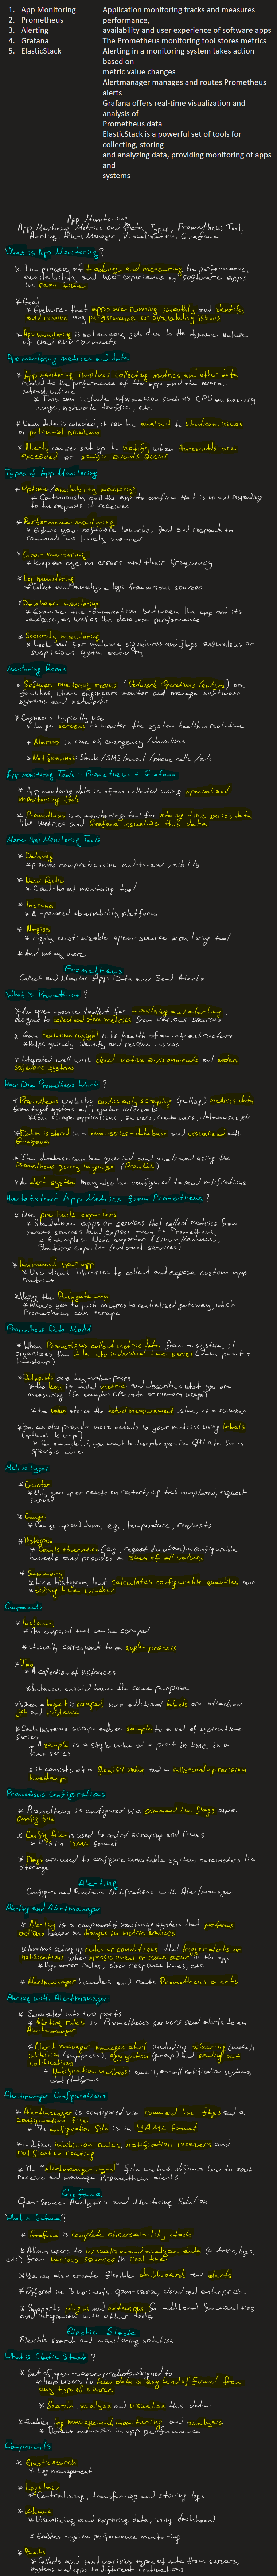 1. App Monitoring
2. Prometheus
3. Alerting
4. Grafana
5. ElasticStack
Application monitoring tracks and measures
performance,
availability and user experience of software apps
The Prometheus monitoring tool stores metrics
Alerting in a monitoring system takes action
based on
metric value changes
Alertmanager manages and routes Prometheus
alerts
Grafana offers real-time visualization and
analysis of
Prometheus data
ElasticStack is a powerful set of tools for
collecting, storing
and analyzing data, providing monitoring of apps
and
systems
App Monitoring
App Monitoring Metrics and Data, Types, Prometheus Tool,
Alerting, Alert Manager, Visualization, Grafana
What is App Monitoring?
* The process of tracking and measuring the performance,
availability and user experience of software apps
in real time
* Goal
* Ensure that apps are running smoothly and identify
and resolve any performance or availability issues
* App monitoring is not an easy job due to the dynamic nature
of cloud environments
App monitoring metrics and data
* App monitoring involves collecting metrics and other data
related to the performance of the app and the overall
infrastructure
* This can include information such as CPU or memory
usage, network traffic, etc
* When data is collected, it can be analized to identify issues
or potential problems
* Alerts can be set up to notify when thresholds are
exceeded or specific events occur
Types of App Monitoring
* Uptime/availability monitoring
* Continuously poll the app to confirm that is up and responding
to the requests it receives
* Performance monitoring
* Ensure your software launches fast and responds to
commands in a timely manner
* Error monitoring
* Keep an eye on errors and their frequency
* Log monitoring
* Collect and analyze logs from various sources
* Database monitoring
* Examine the comunication between the app and its
database, as well as the database performance
* Security monitoring
* Look out for malware signatures and flags
suspicious system activity
Monitoring Rooms
* Software monitoring rooms (Network Operations Centers) are
facilities, where engineers monitor and manage software,
systems and networks
* Engineers typically use
* Large screens to monitor the system health in real-time
* Alarms in case of emergency /downtime
* Notifications: Slack/SMS/email/phone calls/etc
App monitoring Tools - Prometheus & Grafana
* App monitoring data is often collected using specialized
monitoring tools
* Prometheus is a monitoring tool for storing time series data
like metrics and Grafana visualize this data
More App Monitoring Tools
* Datadog
* provides comprehensive end-to-end visibility
* New Relic
* Cloud-based monitoring tool
* Instana
* AI-powered observability platform
* Nagios
* Highly customizable open-source monitoring tool
* And many more
Prometheus
Collect and Monitor App Data and Send Alerts
What is Prometheus?
* An open-source toolkit for monitoring and alerting,
designed to collect and store metrics from various sources
* Gain real-time insight into health of an infrastructure
* Helps quickly identify and resolve issues
* Integrated well with cloud-native environments and modern
software systems
How Does Prometheus Work?
* Prometheus works by continuously scraping (pulling) metrics data
from target systems at regular intervals
* Can scrape applications, servers, containers, databases, etc
* Data is stored in a time-series-database and visualized with
Grafana
* The database can be queried and analized using the
Prometheus query language (PromQL)
* An alert system may also be configured to send notifications
How to Extract App Metrics from Prometheus?
* Use pre-built exporters
* Standalone apps or services that collect metrics from
various sources and expose them to Prometheus
* Examples: Node exporter (Linux Machines),
Blackbox exporter (external services)
* Instrument your app
* Use client libraries to collect and expose custom app
metrics
* Using the Pushgateway
* Allows you to push metrics to centralized gateway, which
Prometheus can scrape
Prometheus Data Model
* When Prometheus collect metric data from a system, it
organizes the data into individual time series (data point +
timestamp)
* Datapoints are key-value pairs
* the key is called metric and describes what you are
measuring (for example: CPU rates or memory usage)
* the value stores the actual measurement value, as a number
* You can also provide more details to your metrics using labels
* For example, if you want to describe specific CPU rate for a
specific core
Metric Types
* Counter
* Only goes up or resets on restart, e.g. task completed, request
served
* Gauge
* Can go up and down, e.g., temperature, requests
* Histogram
* Counts observation (e.g., request durations) in configurable
buckets and provides a sum of all values
* Summary
* Like histogram, but calculates configurable quantiles over
a sliding time window
Components
* Instance
* An endpoint that can be scraped
* Usually correspond to a single process
* Job
* A collection of instances
* Instances should have the same purpose
* When a target is scraped, two additional labels are attached
job and instance
* Each instance scrape adds a sample to a set of system time
series
* A sample is a single value at a point in time in a
time series
* it consists of a float64 value and a millisecond-precision
timestamp
Prometheus Configurations
* Prometheus is configured via command line flags and a
config file
* Config file is used to control scraping and rules
* It is in YML format
* Flags are used to configure immutable system parameters like
storage
Alerting
Configure and Receive Notifications with Alertmanager
Alerting and Alertmanager
* Alerting is a component of monitoring system that performs
actions based on changes in metric values
* Involves setting up rules or conditions that trigger alerts or
notifications when specific event or issue occur in the app
* High error rates, slow response times, etc
* Alertmanager handles and routs Prometheus alerts
Alerting with Alertmanager
* Separated into two parts
* Alerting rules in Prometheus servers send alerts to an
Alertmanager
* Alert manager manages alert including silencing (mute),
inhibition (suppress), aggregation (group) and sending out
notification
* Notification methods: email, on-call notification systems,
chat platforms
Alertmanager Configurations
* Alertmanager is configured via command line flags and a
configuration file
* The configuration file is in YAML format
* It defines inhibition rules, notification receivers and
notification routing
* The "alertmanager.yml" file we have defines how to rout
receive and manage Prometheus alerts
Grafana
Open-Source Analytics and Monitoring Solution
What is Grafana?
* Grafana is complete observability stack
* Allows users to visualize and analyze data (metrics, logs,
etc) from various sources in real time
* You can also create flexible dashboards and alerts
* Offered in 3 variants: open-source, cloud and enterprise
* Supports plugins and extensions for additional functionalities
and integration with other tools
Elastic Stack
Flexible search and monitoring solution
What is Elastic Stack?
* Set of open-source products, aligned to
* Help users to take data in any kind of format from
any type of source
* Search, analyze and visualize this data
* Enables log management, monitoring and analysis
* Detect anomalies in app performance
Components
* Elasticsearch
* Log management
* Logstash
* Centralizing, transforming and storing logs
* Kibana
* Visualizing and exploring data, using dashboard
* Enables system performance monitoring
* Beats
* Collects and send various types of data from servers,
systems and apps to different destinations